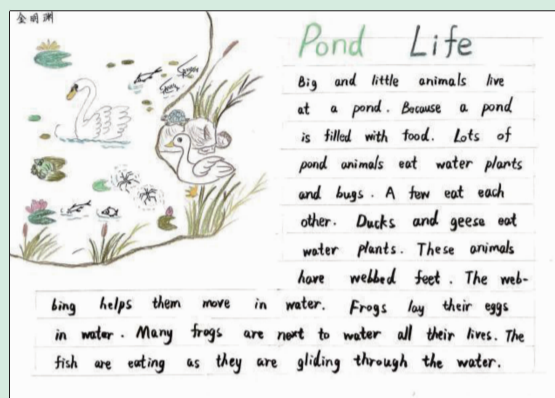 金明渊
Pond Life
Big and little animals live
at a pond. Because a pond
is filled with food. Lots of
pond animals eat water plants
and bugs. A few eat each
other. Ducks and geese eat
water plants. These animals
have webbed feet. The web-
bing helps them move in water. Frogs lay their eggs
in water. Many frogs are next to water all their lives. The
fish are eating as they are gliding through the water.